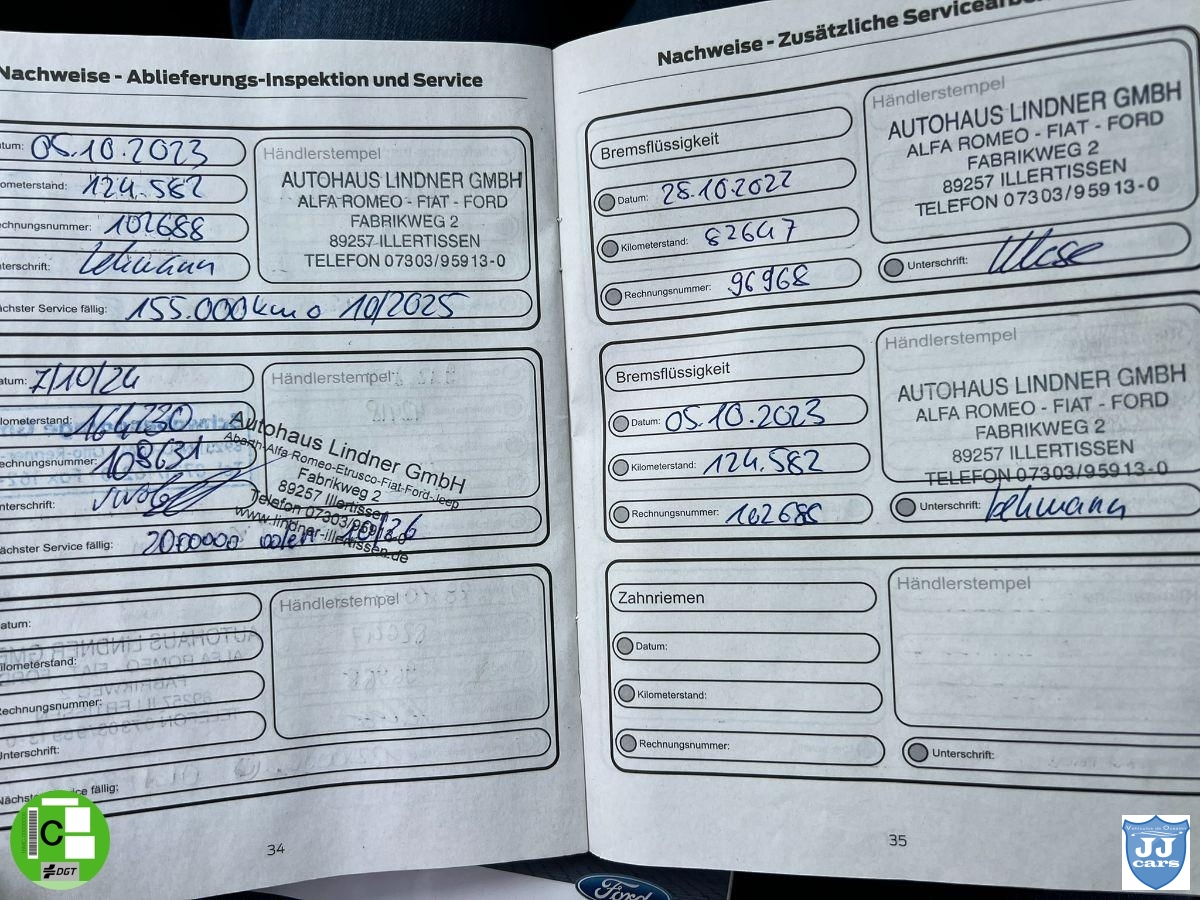 Nachweise - Ablieferungs-Inspektion und Service
tum: 05.10.2023
ometerstand: 124.582
chnungsnummer: 102688
terschrift: Lehmann
Händlerstempel
AUTOHAUS LINDNER GMBH
ALFA ROMEO - FIAT - FORD
FABRIKWEG 2
89257 ILLERTISSEN
TELEFON 07303/95913-0
ächster Service fällig: 155.000km o 10/2025
atum: 7/10/24
lometerstand: 164230
echnungsnummer: 108631
nterschrift:
Händlerstempel
Autohaus Lindner GmbH
Abarth-Alfa-Romeo-Etrusco-Fiat-Ford-Jeep
Fabrikweg 2
89257 Illertissen
Telefon 07303/95913-0
www.lindner-illertissen.de
ächster Service fällig: 10/26
atum:
ilometerstand:
Rechnungsnummer:
Unterschrift:
Händlerstempel
Nächster Service fällig:
34
Nachweise - Zusätzliche Servicearbe
Bremsflüssigkeit
Datum: 28.10.2022
Kilometerstand: 82647
Rechnungsnummer: 96968
Händlerstempel
AUTOHAUS LINDNER GMBH
ALFA ROMEO - FIAT - FORD
FABRIKWEG 2
89257 ILLERTISSEN
TELEFON 07303/95913-0
Unterschrift:
Bremsflüssigkeit
Datum: 05.10.2023
Kilometerstand: 124.582
Rechnungsnummer: 102688
Händlerstempel
AUTOHAUS LINDNER GMBH
ALFA ROMEO - FIAT - FORD
FABRIKWEG 2
89257 ILLERTISSEN
TELEFON 07303/95913-0
Unterschrift: Lehmann
Zahnriemen
Datum:
Kilometerstand:
Rechnungsnummer:
Händlerstempel
Unterschrift:
35
Ford
C
DGT
Vehículos de Ocasión
JJ
cars